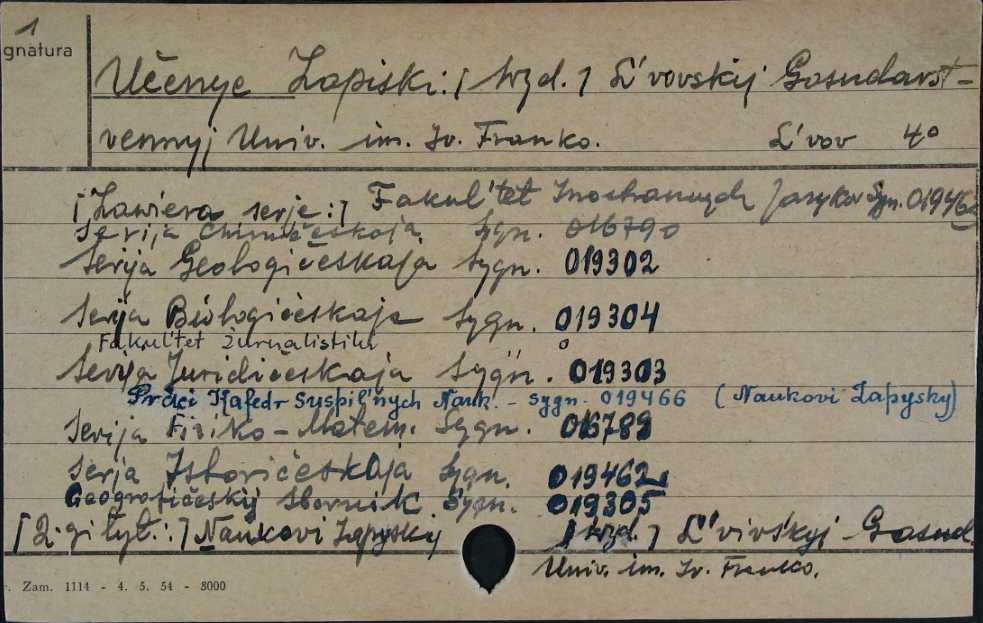 1
gnatura
Učenye Zapiski: [Wyd.] L'vovskij Gosudarst-
vennyj Univ. im. Iv. Franko. L'vov 4°
[Zawiera serje:] Fakul'tet Inostrannych Jazykov Sygn. 019462
Serija Chimičeskaja Sygn. 016790
Serija Geologičeskaja Sygn. 019302
Serija Biologičeskaja Sygn. 019304
Fakul'tet Žurnalistiki "
Serija Juridičeskaja Sygn. 019303
Praci Kafedr Suspil'nych Nauk. - sygn. 019466 (Naukovi Zapysky)
Serija Fiziko - Matem. Sygn. 016789
Serja Istoričeskaja Sygn. 019462
Geografičeskij Sbornik Sygn. 019305
[2-gi tyt.:] Naukovi Zapysky [Wyd.] L'vivśkyj Gosud.
Univ. im. Iv. Franko.
r. Zam. 1114 - 4. 5. 54 - 8000